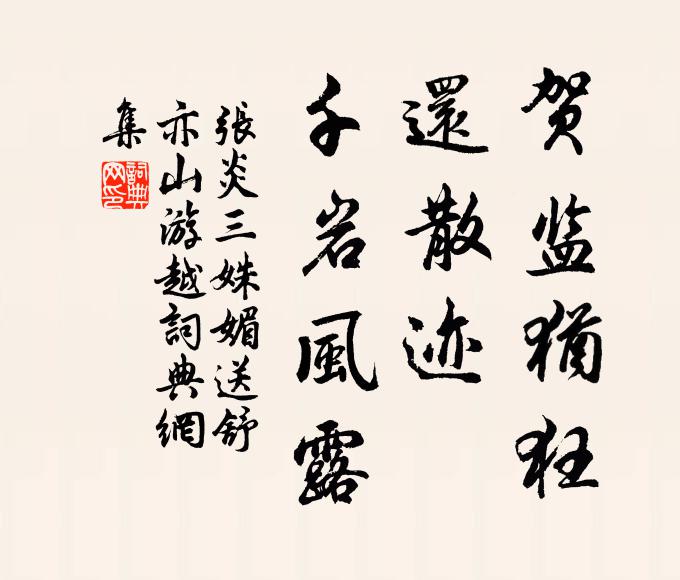 贺监猶狂
還散迹
千岩風露
張炎三姝媚送舒
亦山游越詞典網
集
詞典网印